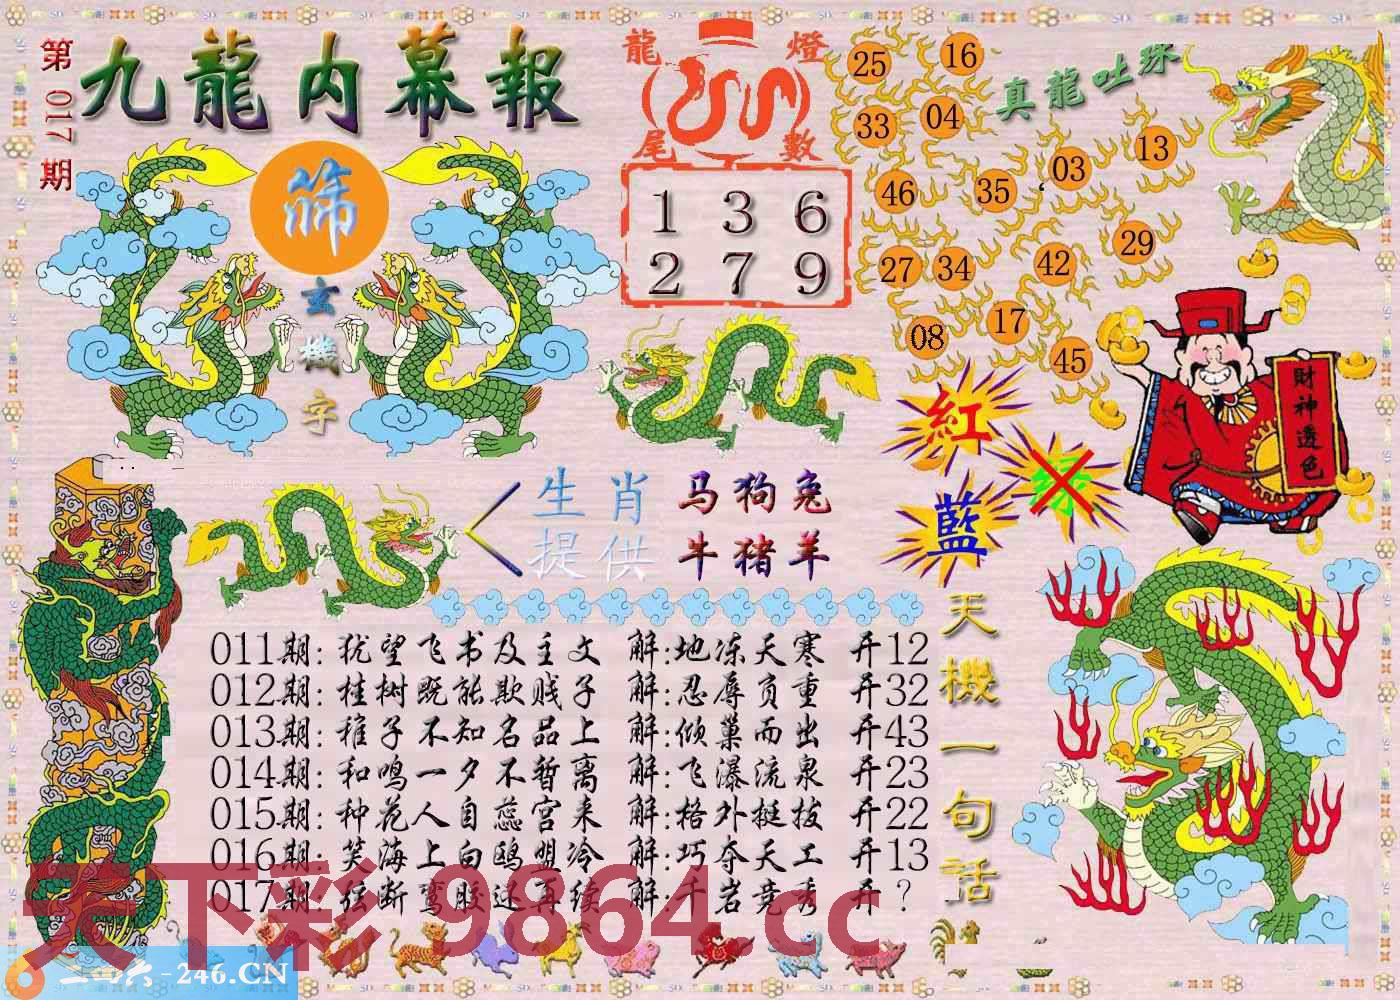 第017期
九龍内幕報
筛
玄機字
龍燈
尾數
1 3 6
2 7 9
真龍吐珠
25 16
33 04
46 35 03 13
27 34 42 29
08 17 45
紅
绿
藍
財神透色
生肖 马狗兔
提供 牛猪羊
天機一句話
011期: 犹望飞书及主文 解:地冻天寒 开12
012期: 桂树既能欺贱子 解:忍辱负重 开32
013期: 稚子不知名品上 解:倾巢而出 开43
014期: 和鸣一夕不暂离 解:飞瀑流泉 开23
015期: 种花人自蕊宫来 解:格外挺拔 开22
016期: 笑海上白鸥盟冷 解:巧夺天工 开13
017期: 弦断鸾胶还再续 解:千岩竞秀 开?
天下彩 9864.cc
二四六-246.CN